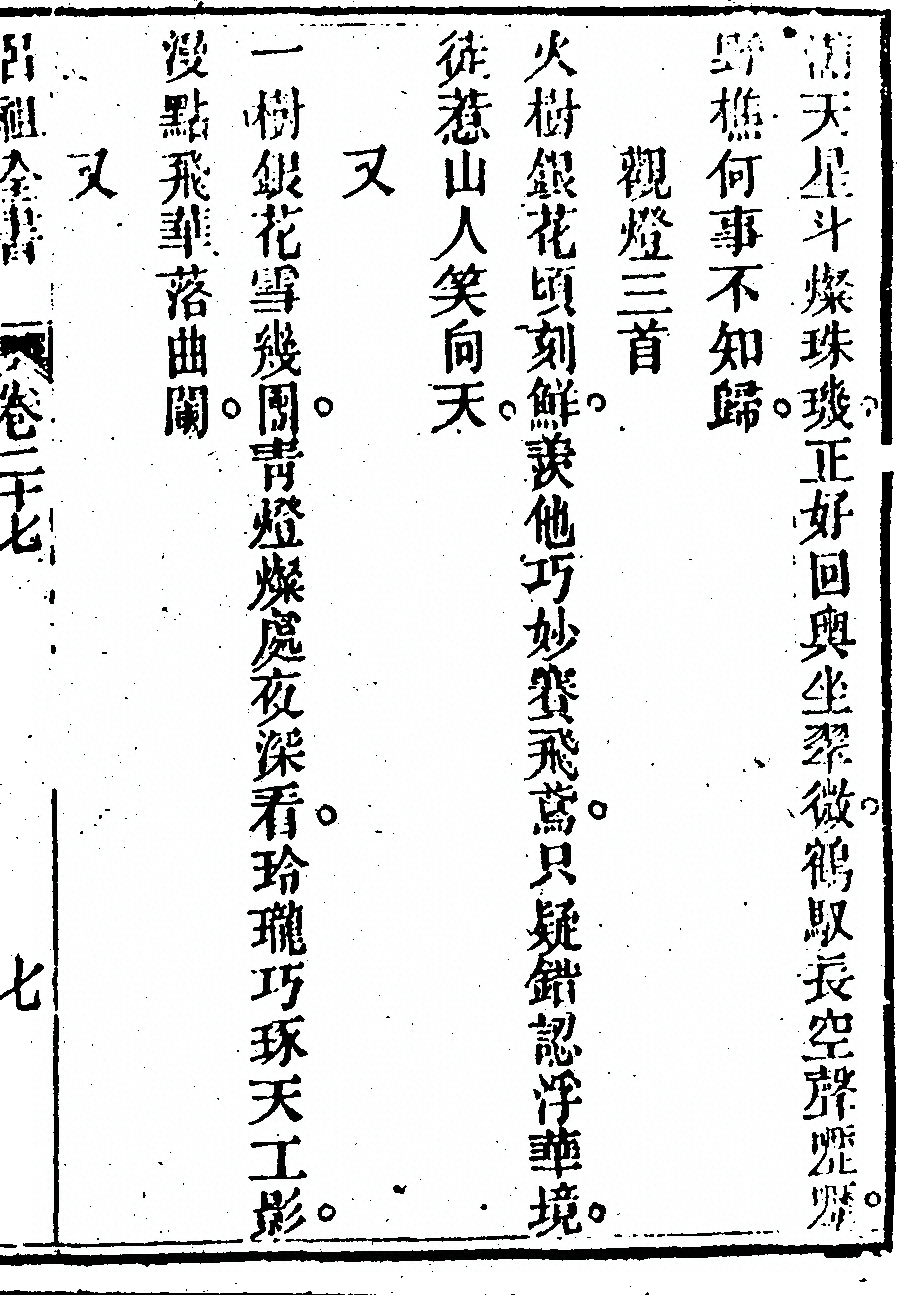 滿天星斗燦珠璣。正好回輿坐翠微。鶴馭長空聲嚦嚦。
野樵何事不知歸。
觀燈三首
火樹銀花頃刻鮮。羨他巧妙賽飛鳶。只疑錯認浮華境。
徒惹山人笑向天。
又
一樹銀花雪幾團。青燈燦處夜深看。玲瓏巧琢天工影。
漫點飛華落曲闌。
又
呂祖全書 卷二十七 七